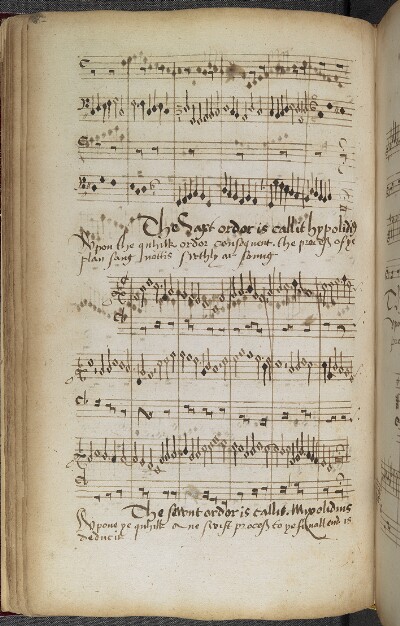 The Saxt ordor is callit hypolidiꝰ
Wpon the quhilk ordor consequent. the proceß of ye
plan sang nottis swthly ar soung
The sevint ordor is callit. Mixolidius
Wpone ye quhilk a ne swift proceß to ye finall end is
deducit